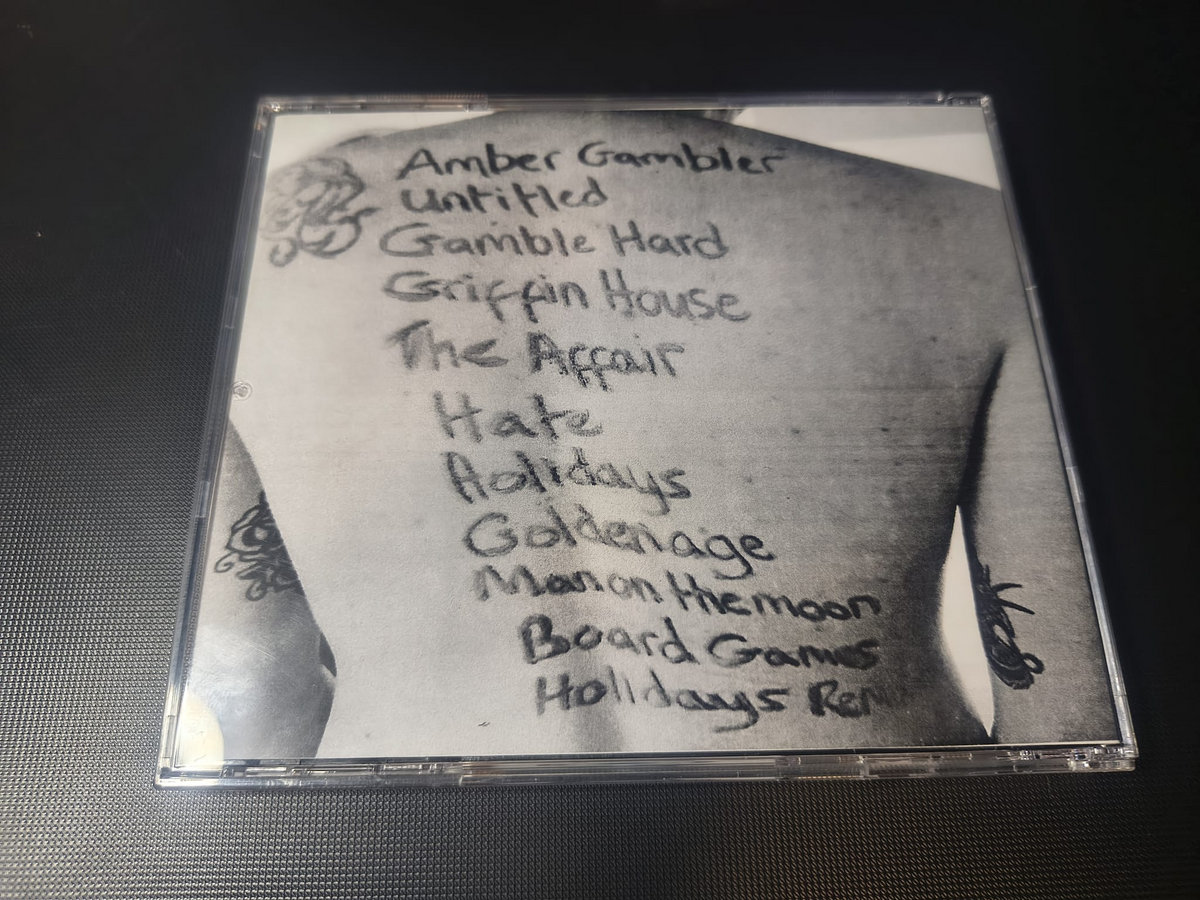 Amber Gambler
Untitled
Gamble Hard
Griffin House
The Affair
Hate
Holidays
Goldenage
Man on the moon
Board Games
Holidays